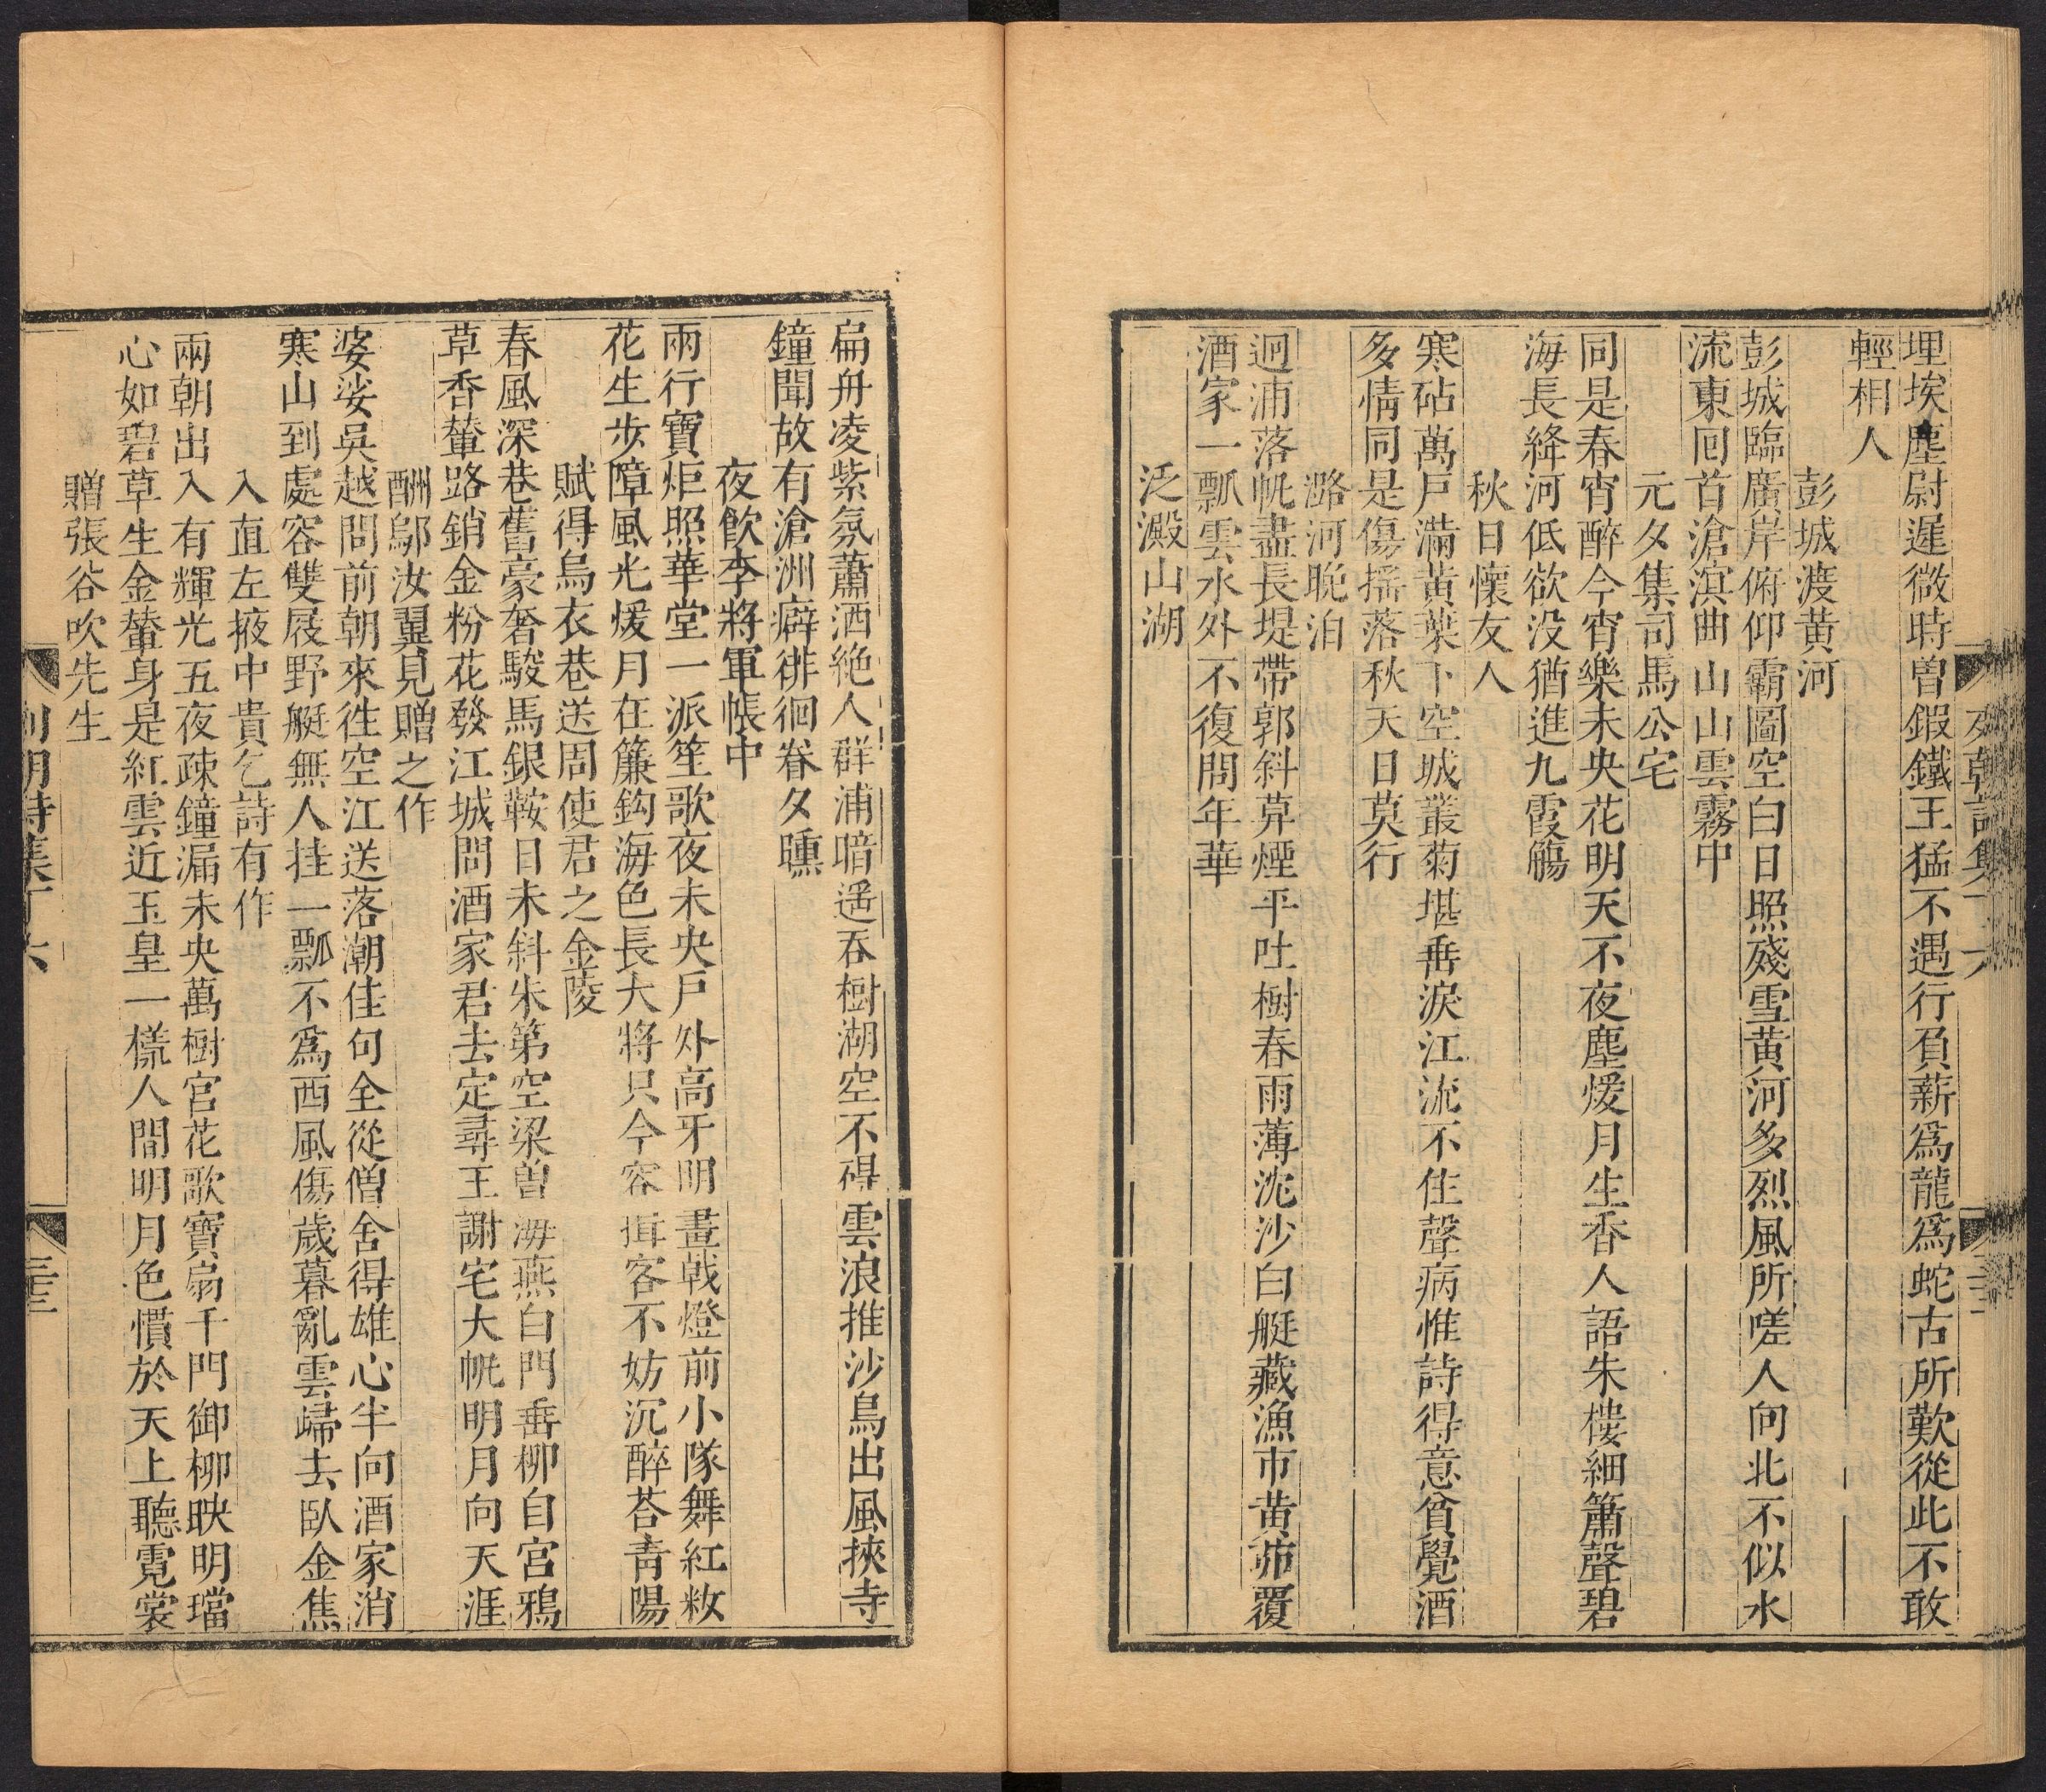 埋埃塵尉遲微時曽鍜鐵王猛不遇行負薪爲龍爲蛇古所歎從此不敢
輕相人
彭城渡黃河
彭城臨廣岸俯仰霸圖空白日照殘雪黄河多烈風所嗟人向北不似水
流東囘首滄溟曲山山雲霧中
元夕集司馬公宅
同是春宵醉今宵樂未央花明天不夜塵煖月生香人語朱樓細簫聲碧
海長絳河低欲没猶進九霞觴
秋日懷友人
寒砧萬戸滿黄葉下空城叢菊堪垂淚江流不住聲病惟詩得意貧覺酒
多情同是傷揺落秋天日莫行
潞河晚泊
迥浦落帆盡長堤帶郭斜草煙平吐樹春雨薄沈沙白艇藏漁市黄茆覆
酒家一瓢雲水外不復問年華
泛澱山湖
扁舟凌紫氛蕭洒絶人群浦暗遥吞樹湖空不得雲浪推沙鳥出風挾寺
鐘聞故有滄洲癖徘徊眷夕曛
夜飲李將軍帳中
兩行寶炬照華堂一派笙歌夜未央戸外高牙明畫戟燈前小隊舞紅粧
花生步障風光煖月在簾鈎海色長大將只今容揖客不妨沉醉荅青陽
賦得烏衣巷送周使君之金陵
春風深巷舊豪奢駿馬銀鞍日未斜朱第空梁曽海燕白門垂柳自宮鴉
草香輦路銷金粉花發江城問酒家君去定尋王謝宅大帆明月向天涯
酬鄔汝翼見贈之作
婆娑吳越問前朝來徃空江送落潮佳句全從僧舍得雄心半向酒家消
寒山到處容雙屐野艇無人挂一瓢不爲西風傷歲暮亂雲歸去臥金焦
入直左掖中貴乞詩有作
兩朝出入有輝光五夜疎鐘漏未央萬樹宮花歌寶扇千門御柳映明璫
心如碧草生金輦身是紅雲近玉皇一樣人間明月色慣於天上聽霓裳
贈張谷吹先生
列朝詩集丁六